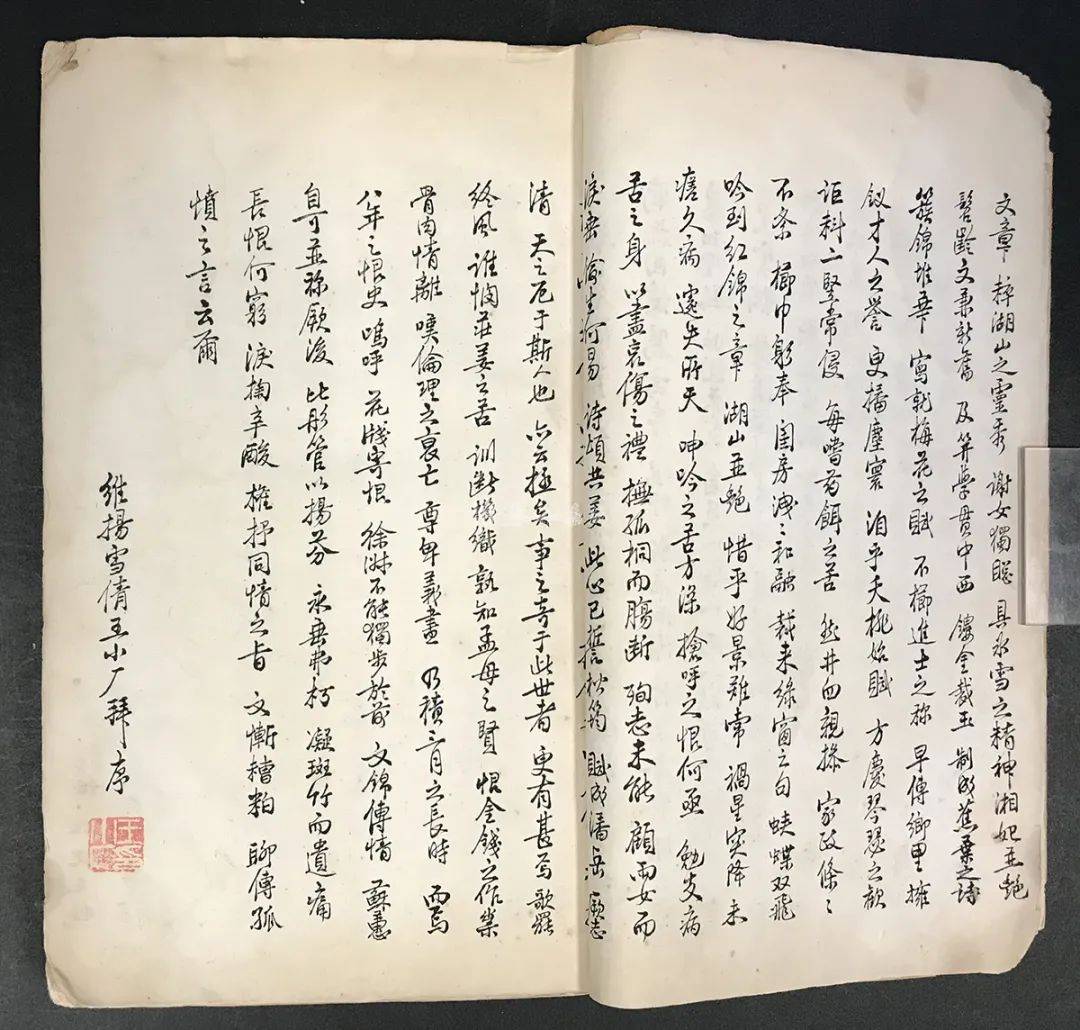 文章 粹湖山之靈秀 謝女獨聰 具氷雪之精神 湘妃並艷
髫齡文兼新舊 及笄學貫中西 鏤金裁玉 制成蕉葉之詩
簇錦堆華 寫就梅花之賦 不櫛進士之称 早傳鄉里 擁
釵才人之譽 更播塵寰 洎乎夭桃始賦 方慶琴瑟之歡
詎料二豎常侵 每嚐药餌之苦 然井臼親操 家政條〻
不紊 櫛巾躬奉 閨房洩〻和融 裁来綠窗之句 蛺蝶双飛
吟到红錦之章 湖山並艷 惜乎好景難常 禍星突降 未
痊久病 遽失所天 呻吟之苦方深 搶呼之恨何亟 勉支病
苦之身 以盡哀傷之禮 撫孤桐而腸断 殉志未能 顧両女而
淚垂 偷生何易 詩 共姜 此心已誓 柏 賦成潘岳
清 天之厄于斯人也 亦云極矣 事之奇于此世者 更有甚焉 歌罷
終風 誰憫荘姜之苦 訓断機織 孰知孟母之賢 恨金錢之作祟
骨肉情離 嘆倫理之哀亡 尊卑義盡 乃積三月之長時 而寫
八年之恨史 嗚呼 花牋寄恨 徐淑不能獨步於前 文錦傳情 蘇蕙
自可並称厥後 比彤管以揚芬 永垂弗朽 凝斑竹而遺痛
長恨何窮 淚掬辛酸 榷抒同情之旨 文慚糟粕 聊傳孤
憤之言云爾
維揚雪倩王小厂拜序